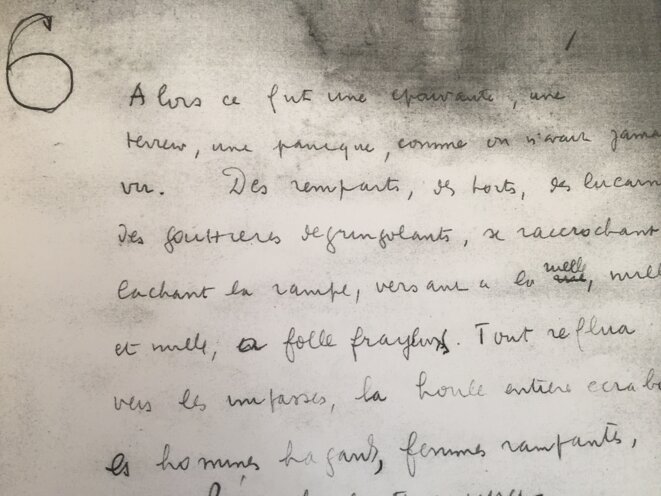 6
Alors ce fut une epouvante, une
terreur, une panique, comme on n'avait jama
vu. Des remparts, des toits, des lucarn
des gouttieres degringolants, se raccrochant
lachant la rampe, versant a la ruelle, mill
et mille, folle frayeur. Tout reflua
vers les impasses, la houle entiere ecrab
es hommes hagards, femmes rampantes,